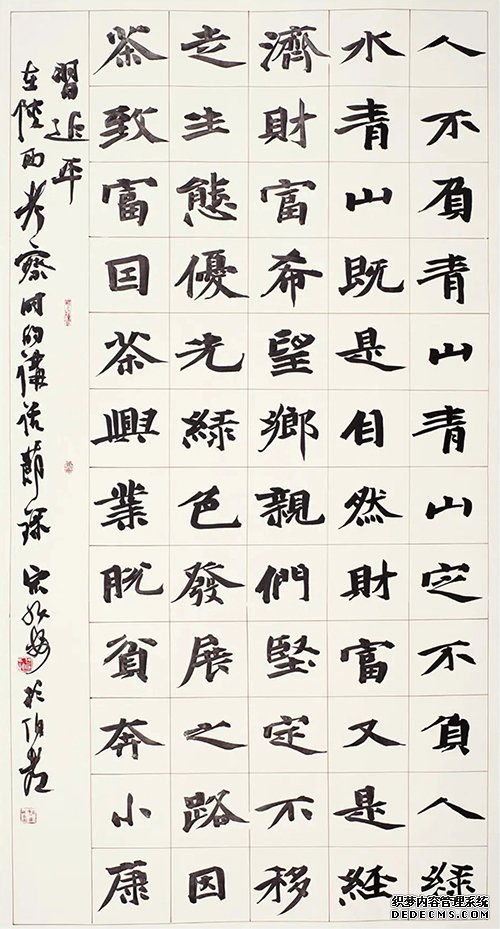 人不負青山青山定不負人綠
水青山既是自然財富又是經
濟財富希望鄉親們堅定不移
走生態優先綠色發展之路因
茶致富因茶興業脫貧奔小康
習近平
在陝西考察时的講话節錄
织梦内容管理系统
DEDECMS.COM